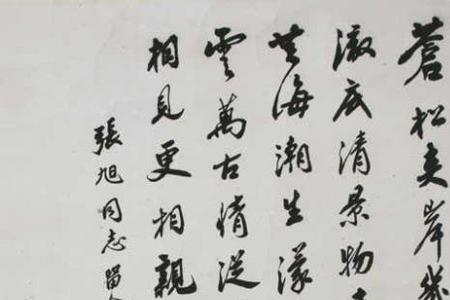 蒼松夾岸幾
澈底清景物
共海潮生
雲萬古情從
相見更相親
張旭同志留